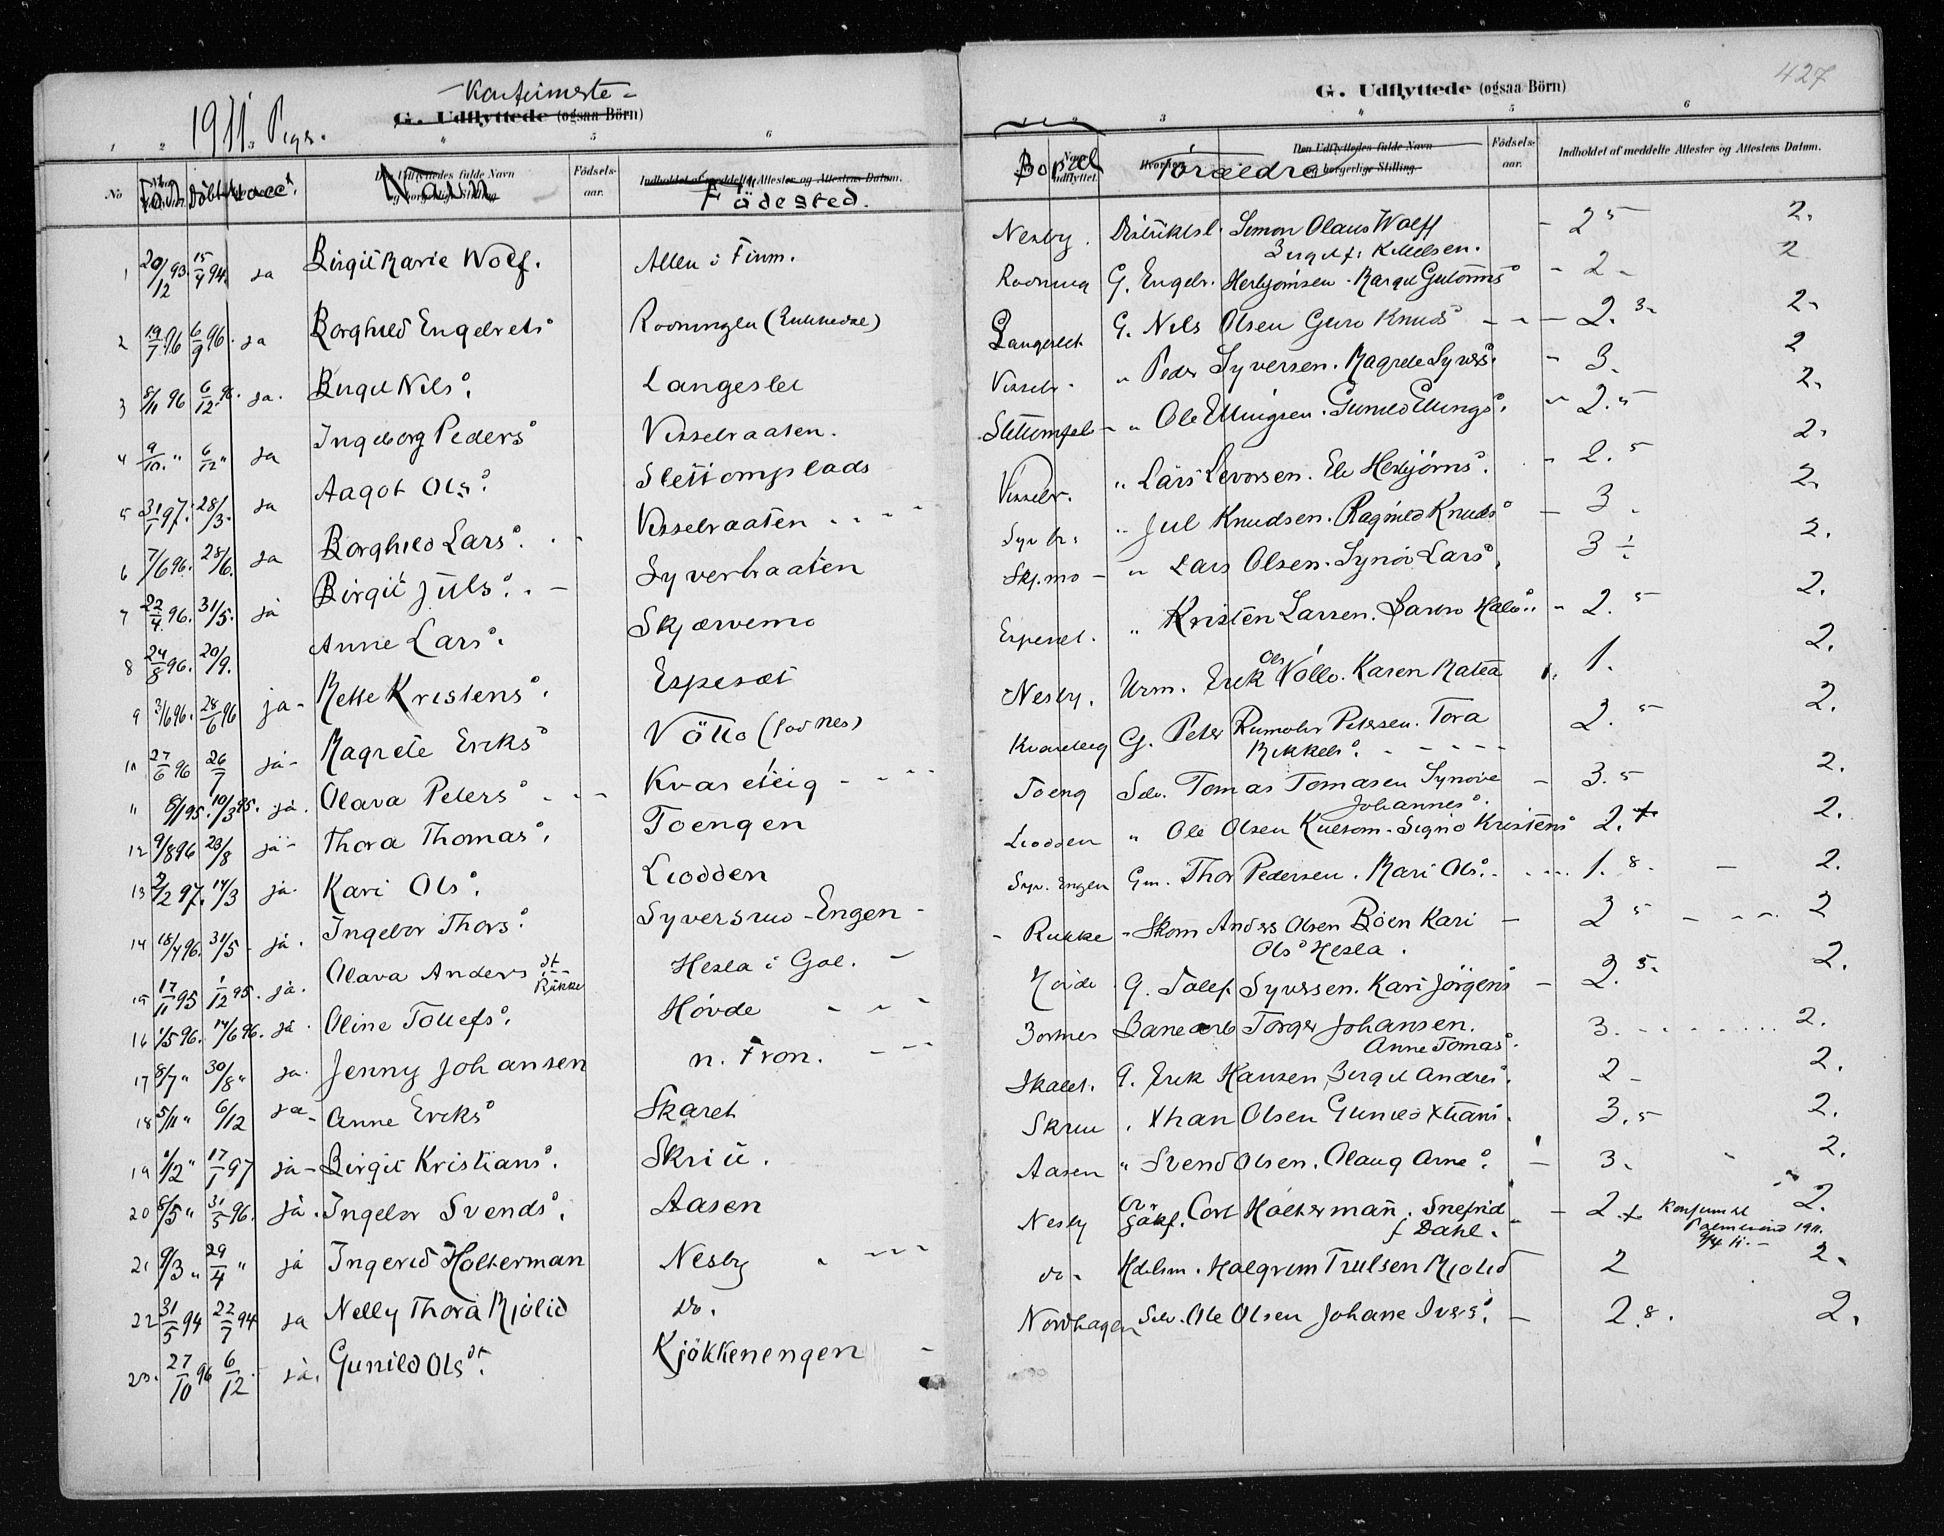 Konfirmerte
G. Udflyttede (ogsaa Börn)
1911. Piger.
1 2 3 4 5 6
No Född Döbt Vacc. Navn Fødsels-aar. Födested.
Den Udflyttedes fulde Navn og borgerlige Stilling.
Indholdet af meddelte Attester og Attestens Datum.
1 20/12 93. 15/4 94. ja Birgit Marie Wolf. Alten i Finm.
2 19/7 96 6/9 96. ja Borghild Engebrets Rodningen (Rukkedal)
3 8/11 96 6/12 96. ja. Birgit Nils. Langeslet
4 9/10 " 6/12 " ja Ingeborg Peders Visselraaten.
5 31/1 97. 28/3. ja Aagot Ols. Slettomplads
6 7/6 96. 28/6. ja Borghild Lars. Visselraaten
7 22/4 96. 31/5. ja Birgit Juls. Syverbraaten
8 24/8 96. 20/9. Anne Lars. Skjærvemo
9 3/6 96. 28/6 96 ja Mette Kristens. Espeset
10 27/6 96 26/7 ja Magrete Eriks Völlo (Jod Nes)
" 8/1 95. 10/3 95. ja. Olava Peters Kvarsteig
12 9/8 96 23/8 ja Thora Thomas. Toengen
13 2/2 97. 14/3 ja. Kari Ols. Liodden
14 18/4 96. 31/5. ja. Ingebor Thors. Syversrud-Engen
15 17/11 95 1/12 95. ja. Olava Anders dt Rukke Hesla i Gol.
16 1/5 96. 14/6 96. ja. Oline Tollefs. Hövde
17 8/7 " 30/8 " ja. Jenny Johansen n. Fron.
18 5/11 " 6/12 ja Anne Eriks Skaret
19 1/2 " 17/1 97 ja Birgit Kristians. Skriu.
20 8/5 " 31/5 96. ja. Ingebor Svends. Aasen
21 9/3 " 29/4 " ja Ingerid Holterman Nesby
22 31/5 94 22/7 94 ja Nelly Thora Mjölid do.
23. 27/10 96 6/12 ja. Gunild Ols dt. Kjökkenengen
427
G. Udflyttede (ogsaa Börn)
3 4 5 6
Bopæl Forældre
Den Udflyttedes fulde Navn og borgerlige Stilling.
Fødsels-aar.
Indholdet af meddelte Attester og Attestens Datum.
Nesby. Distriktsl. Simon Olaus Wolff 2 5 2.
Birgit f. Killelsen.
Rodning G. Engebr. Herbjörnsen. Margit Guttorms 2 2
Langeslet G. Nils Olsen Guro Knuds 2. 3 2.
Visselr. " Peder Syversen. Magrete Syvers. 3. 2
Slettempl. " Ole Ellingsen. Gunild Ellings. 2. 5 2.
Visselr. " Lars Levorsen. Eli Herbjörns. 2. 5 2.
Syv br. " Jul Knudsen. Ragnild Knuds 3 2.
Skj.mo " Lars Olsen. Synöv Lars. 3 ÷ 2.
Espeset. " Kristen Larsen. Barbro Halv. 2. 5 2.
Nesby. Urm. Erik Ols Völlo. Karen Matea 1. 2.
Kvarsteig G. Peter Rumohr Petersen. Tora 2. 5 2.
Mikkels.
Toeng Selv. Tomas Tomasen Synöve 3. 5 2.
Johannes.
Liodden " Ole Olsen Kulsom. Signe Kristens 2. + 2.
Syv. Engen Gm. Thor Pedersen. Mari Ols. 1. 8. 2.
Rukke Skom Anders Olsen Böen Kari 2 5 2
Ols Hesla.
Hövde G. Tollef Syversen. Kari Jörgens 2. 5. 2.
Bortnes Banearb Torger Johansen. 3. 2.
Anne Tomas.
Skaret. G. Erik Hansen Birgit Andres. 2 2.
Skriu. Xhan Olsen Gunild Xtians. 3. 5 2.
Aasen " Svend Olsen. Olaug Arne. 3. 2.
Nesby Ov. Sakf. Cort Holtermann. Snefrid 2. + 2.
f Dahl.
Konfirmert Palmesönd 1911. 9/4 11.
do. Hdelsm. Halgrim Trulsen Mjölid 2 2.
Nordhagen Selv. Ole Olsen Johane Ivers. 2. 8. 2.